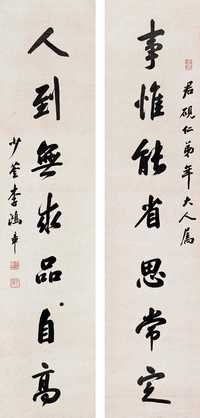 君硯仁弟年大人屬
事惟能省思常定
人到無求品自高
少荃李鴻章